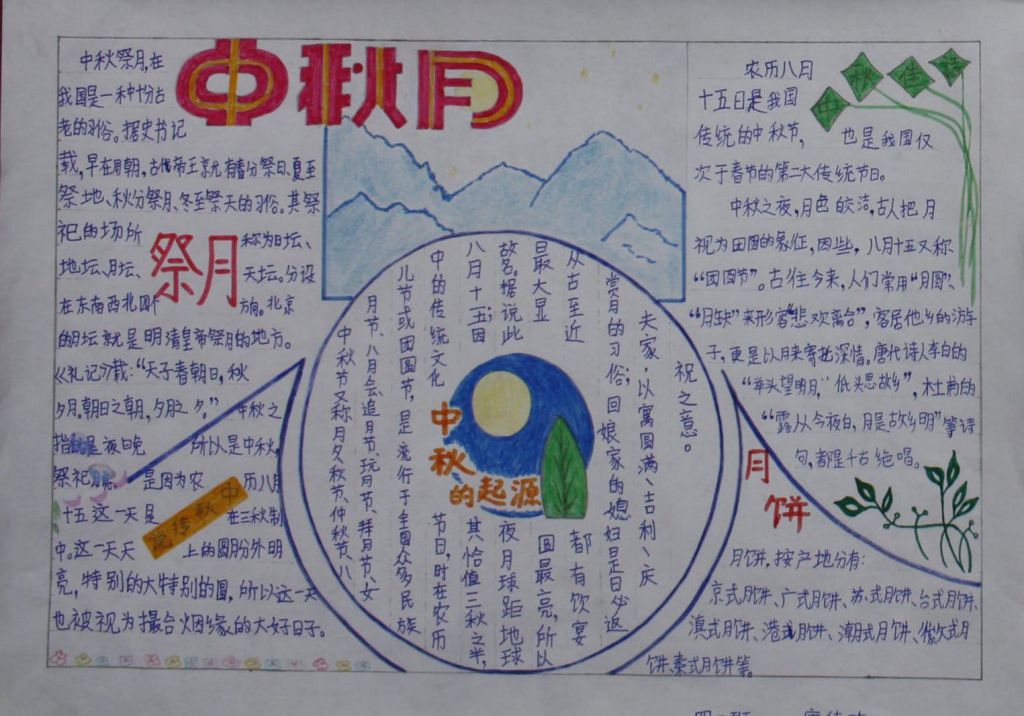 中秋月
中秋祭月,在
我国是一种十分古
老的习俗。据史书记
载,早在周朝,古代帝王就有春分祭日、夏至
祭地、秋分祭月、冬至祭天的习俗。其祭
祀的场所
称为日坛、
地坛、月坛、
天坛。分设
在东南西北四个
方向。北京
的月坛就是明清皇帝祭月的地方。
《礼记》载:“天子春朝日,秋
夕月。朝日之朝,夕月之夕。”
中秋之
夜晚
所以是中秋,
祭祀
是因为农
历八月
十五这一天是
在三秋制
中,这一天天
上的圆月份外明
亮,特别的大特别的圆,所以这一天
也被视为撮合烟缘的大好日子。
祭月
中秋佳节
农历八月
十五日是我国
传统的中秋节,
也是我国仅
次于春节的第二大传统节日。
中秋之夜,月色皎洁,古人把月
视为团圆的象征,因些,八月十五又称
“团圆节”。古往今来,人们常用“月圆”、
“月缺”来形容“悲欢离合”,客居他乡的游
子,更是以月来寄托深情,唐代诗人李白的
“举头望明月,低头思故乡”,杜甫的
“露从今夜白,月是故乡明”等诗
句,都是千古绝唱。
祝之意。
夫家,以寓圆满、吉利、庆
赏月的习俗;回娘家的媳妇是日必返
从古至近
都有饮宴
日最大显
圆最亮,所以
故名。据说此
夜月球距地球
八月十五;因
其恰值三秋之半,
中的传统文化
节日,时在农历
儿节或团圆节,是流行于全国众多民族
月节、八月会、追月节、玩月节、拜月节、女
中秋节又称月夕、秋节、仲秋节、八
中秋
的起源
月饼
月饼,按产地分有:
京式月饼、广式月饼、苏式月饼、台式月饼、
滇式月饼、港式月饼、潮式月饼、徽式月
饼、秦式月饼等。